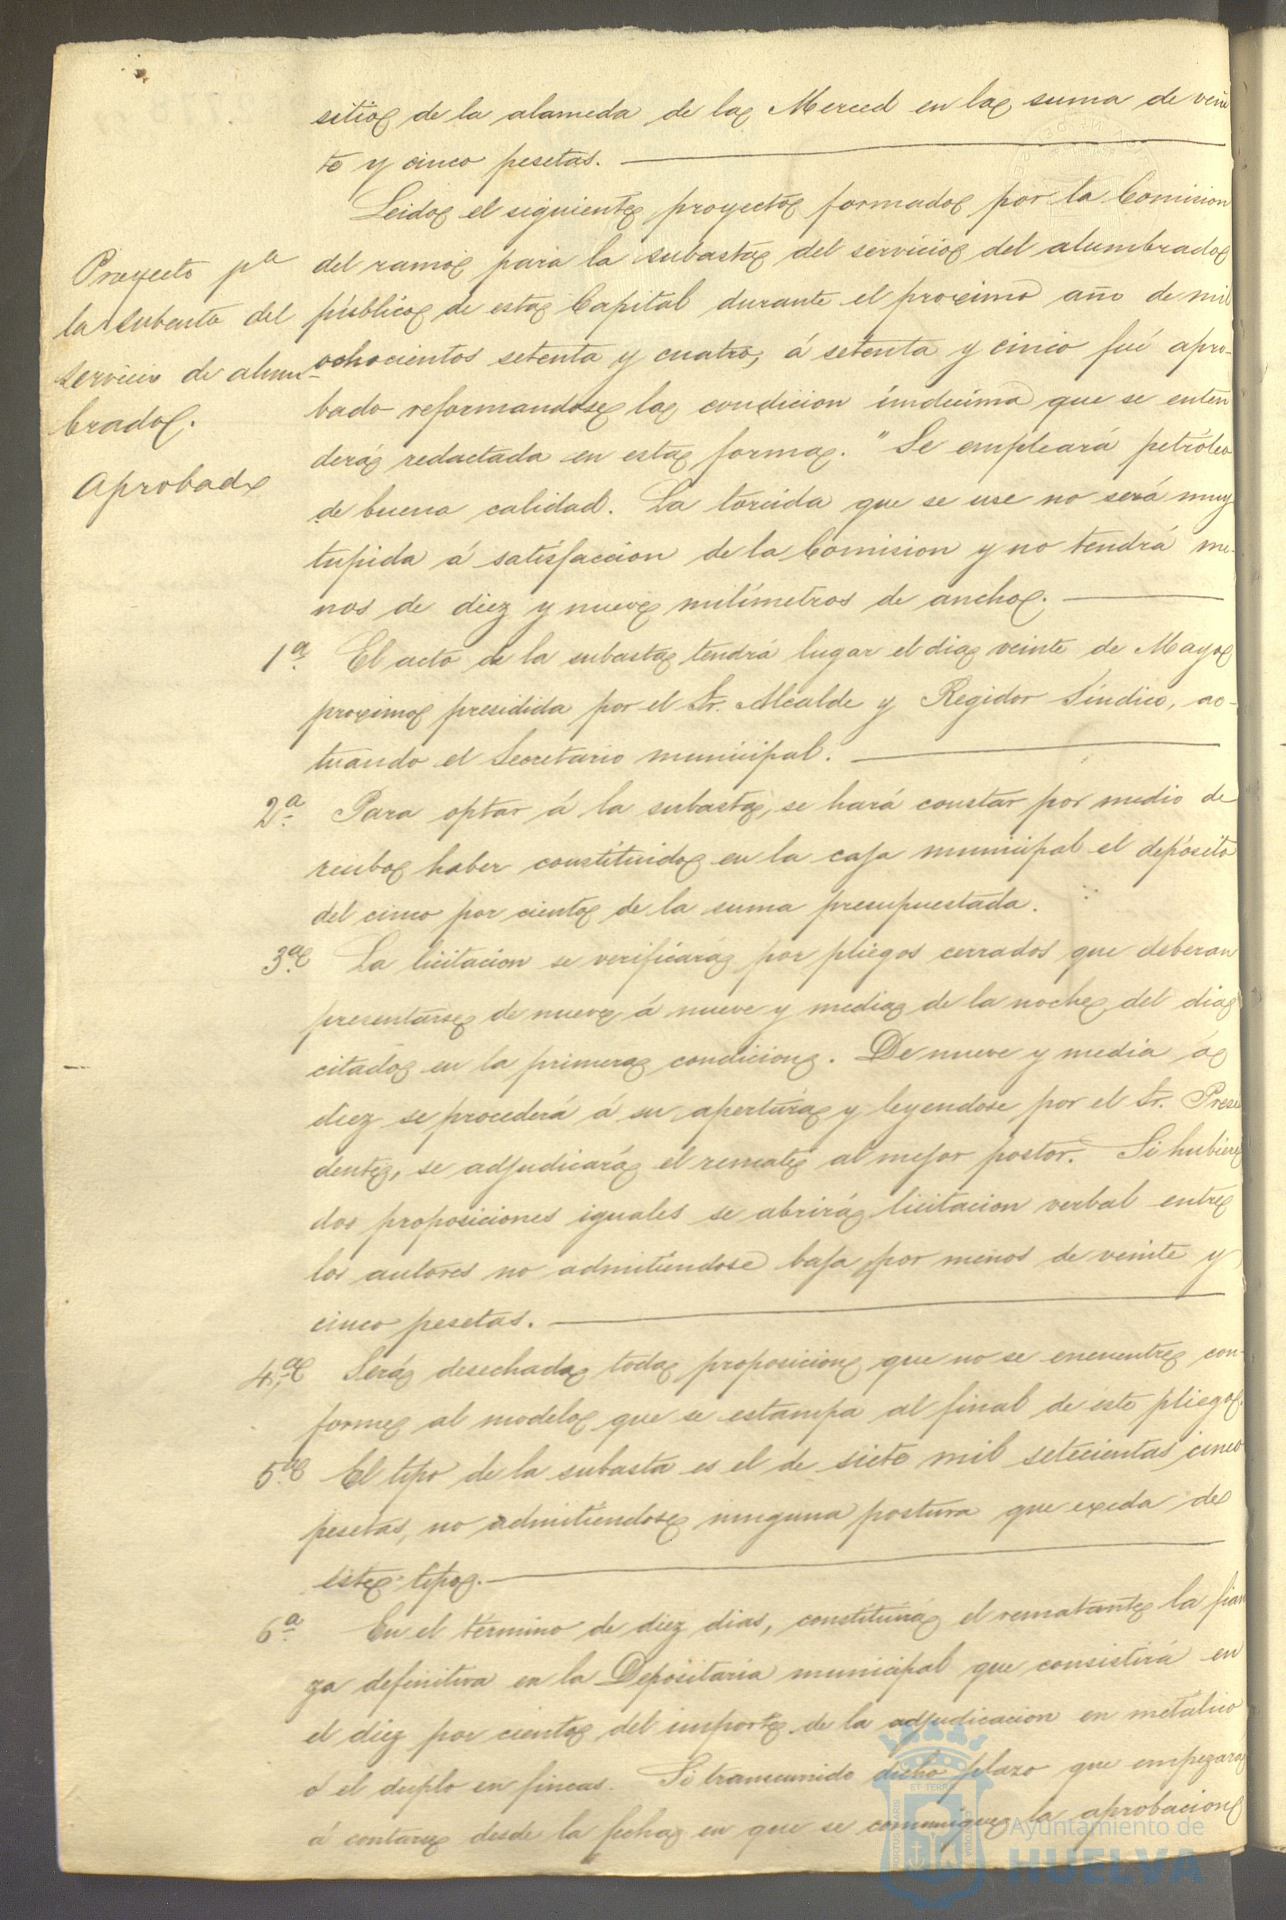 sitio de la alameda de la Merced en la suma de vein
te y cinco pesetas.
Leido el siguiente proyecto formado por la Comision
del ramo para la subasta del servicio del alumbrado
público de esta Capital durante el proximo año de mil
ochocientos setenta y cuatro, á setenta y cinco fué apro-
bado reformandose la condicion undécima que se enten
derá redactada en esta forma. "Se empleará petróleo
de buena calidad. La torcida que se use no será muy
tupida á satisfaccion de la Comision y no tendrá me-
nos de diez y nueve milímetros de ancho.
Proyecto pa
la subasta del
servicio de alum
brado.
Aprobado
1a. El acto de la subasta tendrá lugar el dia veinte de Mayo
proximo presidida por el Sr. Alcalde y Regidor Síndico, ac-
tuando el Secretario municipal.
2a. Para optar á la subasta, se hará constar por medio de
recibo haber constituido en la caja municipal el depósito
del cinco por ciento de la suma presupuestada.
3a. La licitacion se verificará por pliegos cerrados que deberan
presentarse de nueve á nueve y media de la noche del dia
citado en la primera condicion. De nueve y media á
diez se procederá á su apertura y leyendose por el Sr. Presi
dente, se adjudicará el remate al mejor postor. Si hubiere
dos proposiciones iguales se abrirá licitacion verbal entre
los autores no admitiendose baja por menos de veinte y
cinco pesetas.
4a. Será desechada toda proposicion que no se encuentre con-
forme al modelo que se estampa al final de este pliego.
5a. El tipo de la subasta es el de siete mil setecientas cinco
pesetas, no admitiendose ninguna postura que exceda de
este tipo.
6a. En el término de diez dias, constituirá el rematante la fian
za definitiva en la Depositaria municipal que consistirá en
el diez por ciento del importe de la adjudicacion en metalico
ó el duplo en fincas. Si transcurrido dicho plazo que empezara
á contarse desde la fecha en que se comunique la aprobacion
Ayuntamiento de
HUELVA